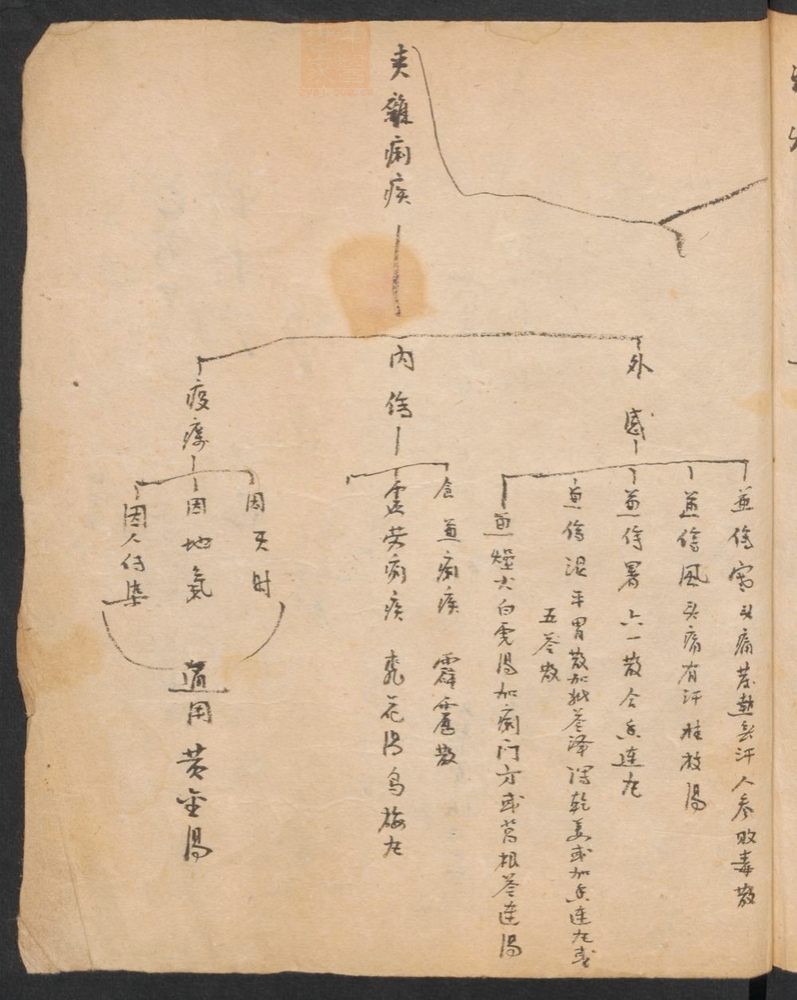 夹雜痢疾
外感
兼傷寒头痛發熱無汗人参败毒散
兼傷風头痛有汗桂枝湯
兼傷暑六一散合香連丸
兼傷湿平胃散加 苓泽 乾姜或加香連丸或
五苓散
兼燥火白虎湯加痢門方或葛根苓連湯
内傷
食兼痢疾 霹靂散
虚劳痢疾 桃花湯烏梅丸
疫痢
因天时
因地氣
因人传染
通用黄金湯